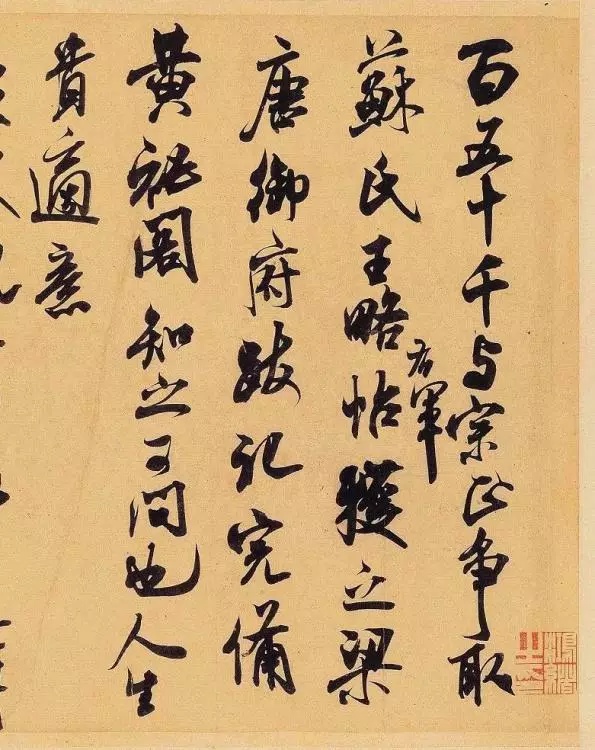 百五十千与宗正爭取
蘇氏王略帖右軍獲之梁
唐御府跋記完備
黃祕閣知之可問也人生
貴適意